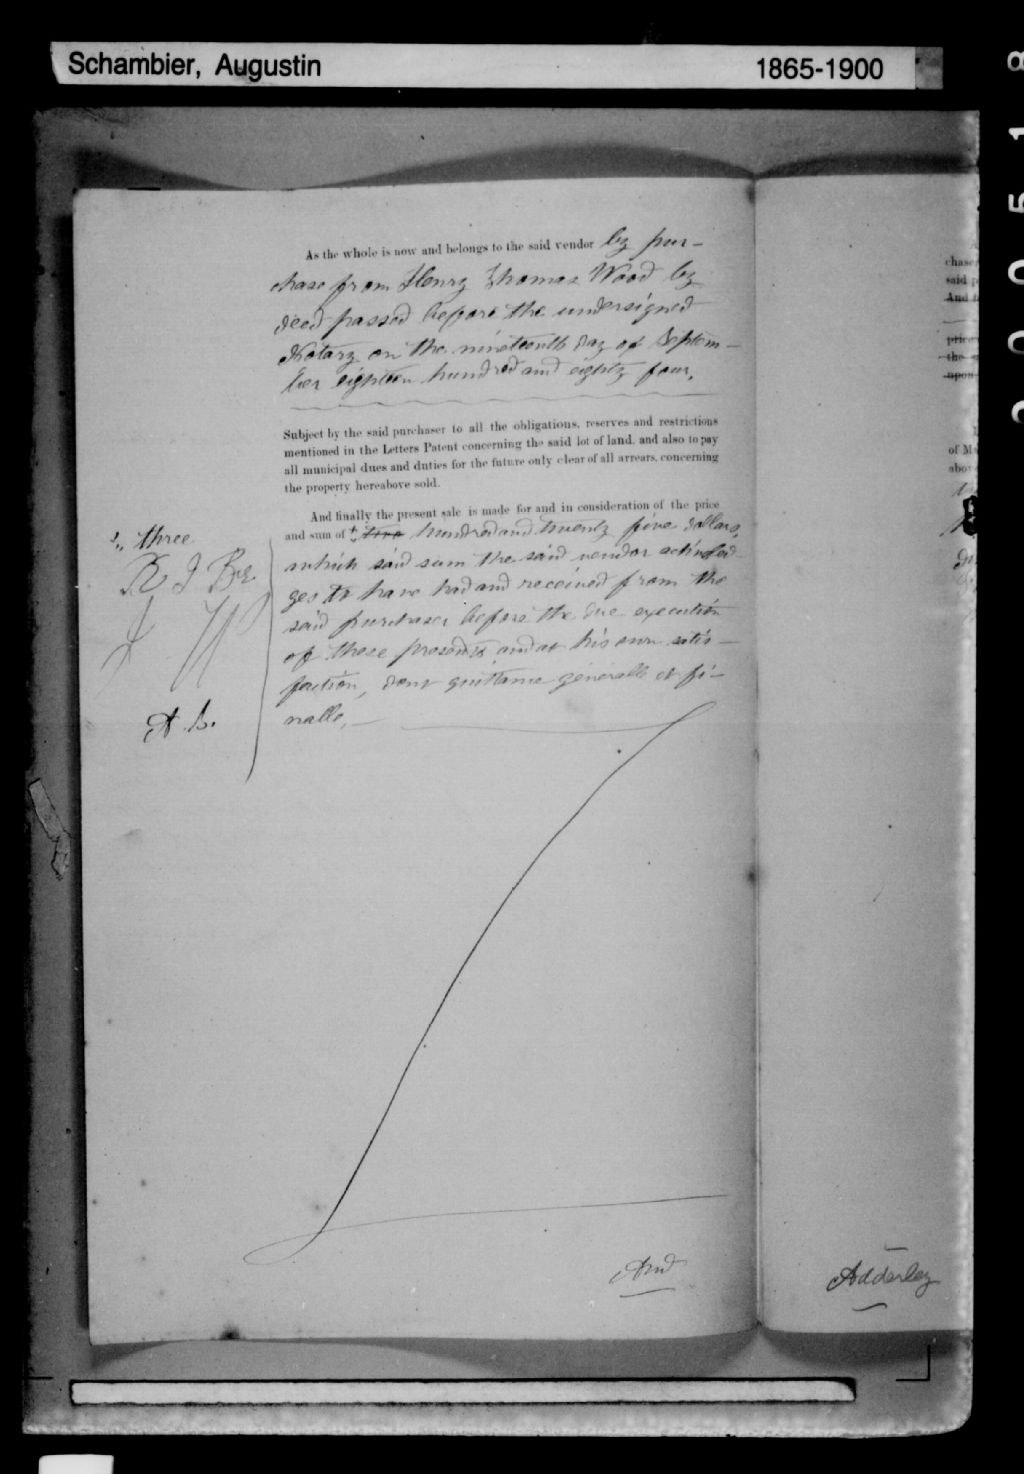 Schambier, Augustin
1865-1900
As the whole is now and belongs to the said vendor by pur-
chase from Henry Thomas Wood by
deed passed before the undersigned
Notary on the nineteenth day of Septem-
ber eighteen hundred and eighty four.
Subject by the said purchaser to all the obligations, reserves and restrictions
mentioned in the Letters Patent concerning the said lot of land, and also to pay
all municipal dues and duties for the future only clear of all arrears, concerning
the property hereabove sold.
And finally the present sale is made for and in consideration of the price
and sum of two hundred and twenty five dollars,
which said sum the said vendor acknoled-
ges to have had and received from the
said purchaser before the due execution
of these presents and at his own satis-
faction, dont quittance générale et fi-
nalle,
three
A. S.
And
chase
said p
And
price
the
upon
of M
above
Adderley